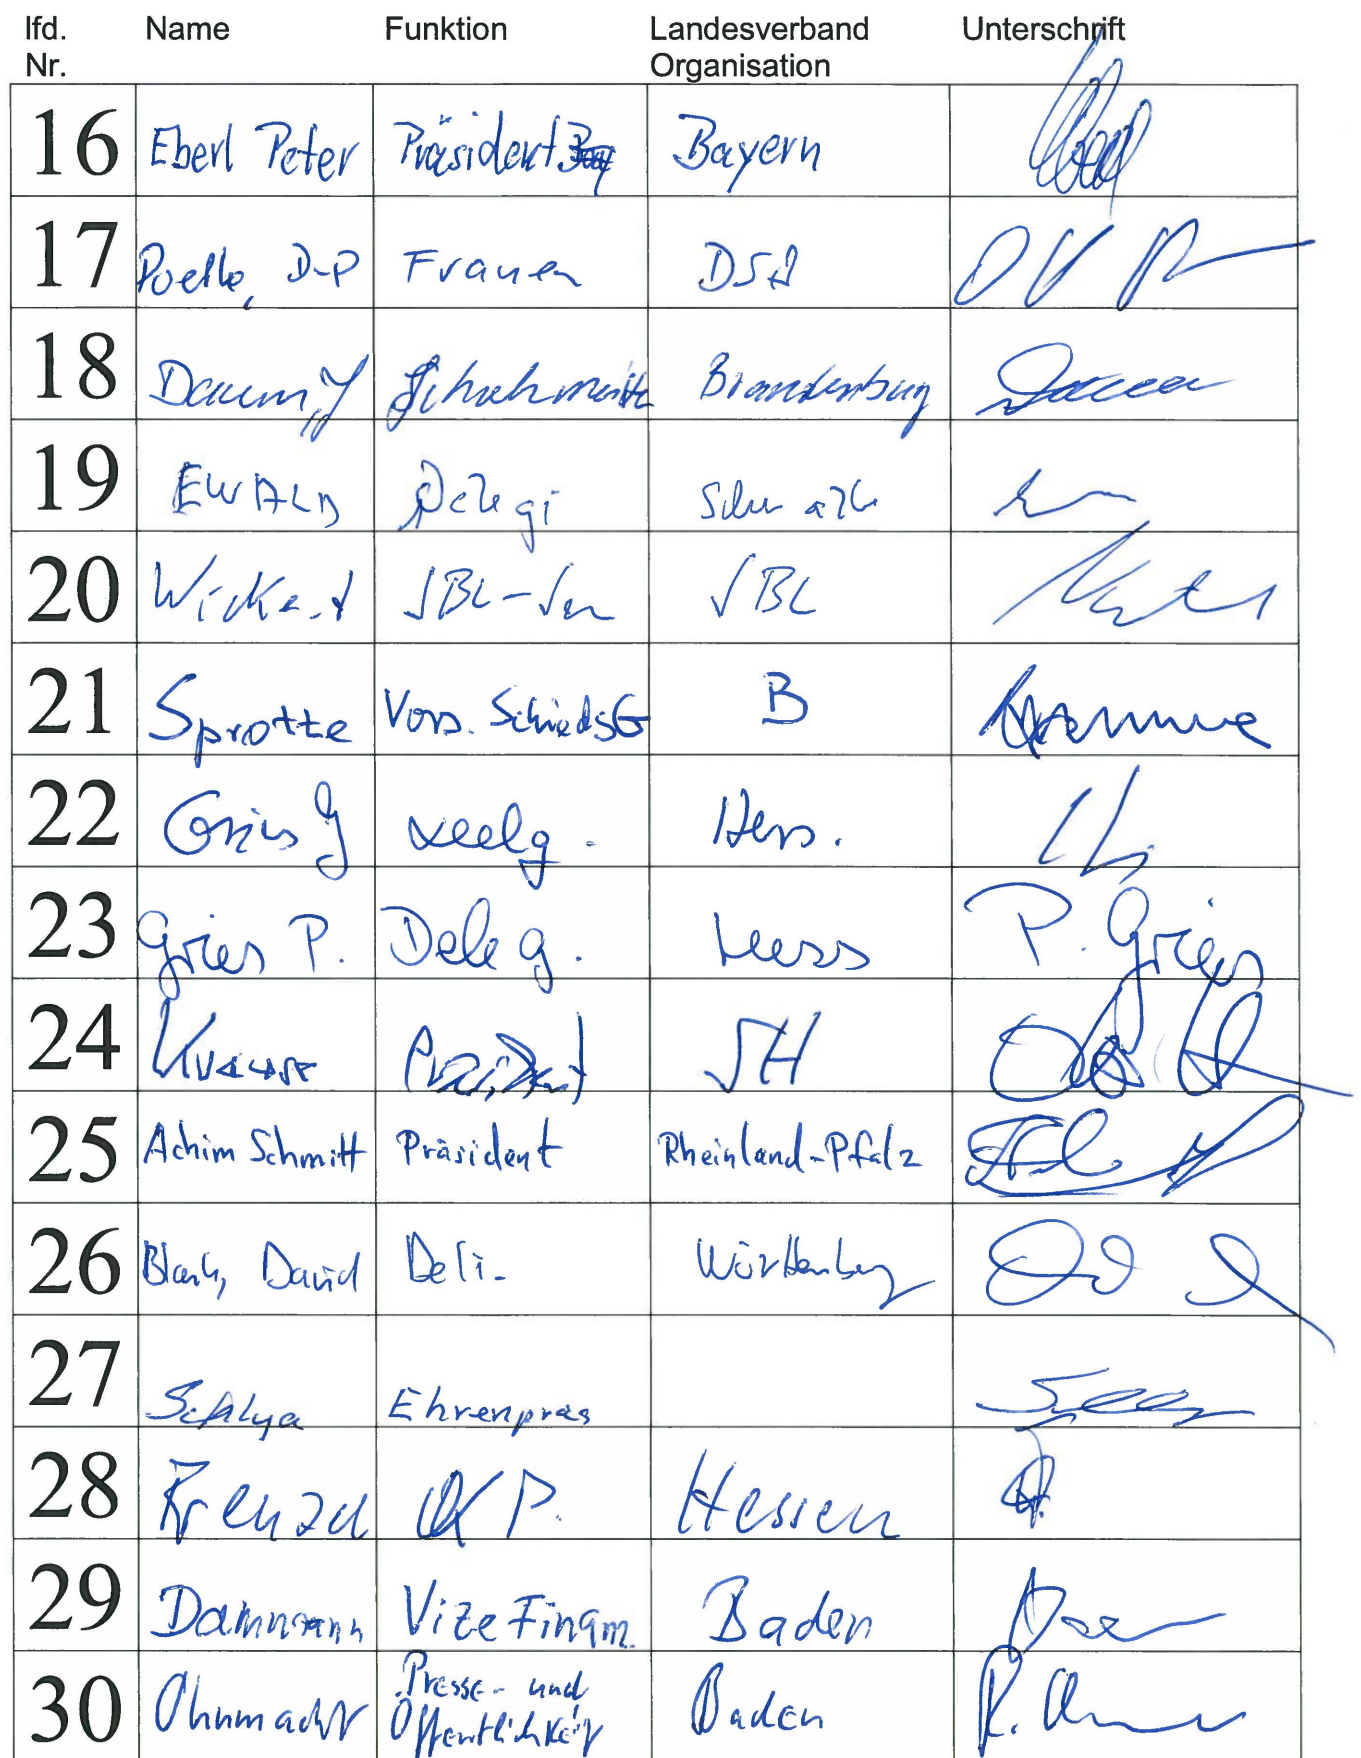 lfd. Name Funktion Landesverband Unterschrift
Nr. Organisation
16 Eberl Peter Präsident Bayern
17 D-P Frauen DSB
18 Daum, J Schatzmeister Brandenburg
19 EWALD Delegi
20 Wickert SBL SBL
21 Sprotte Vors. SchiedsG B
22 Gries G Delg. Hess.
23 Gries P. Deleg. Hess P. Gries
24 Krause Präsident SH
25 Achim Schmitt Präsident Rheinland-Pfalz
26 Blank, David Deli. Württemberg
27 Ehrenpräs
28 P. Hessen
29 Dammann Vize Finanz. Baden
30 Ohnmacht Presse- und Baden
Öffentlichkeit